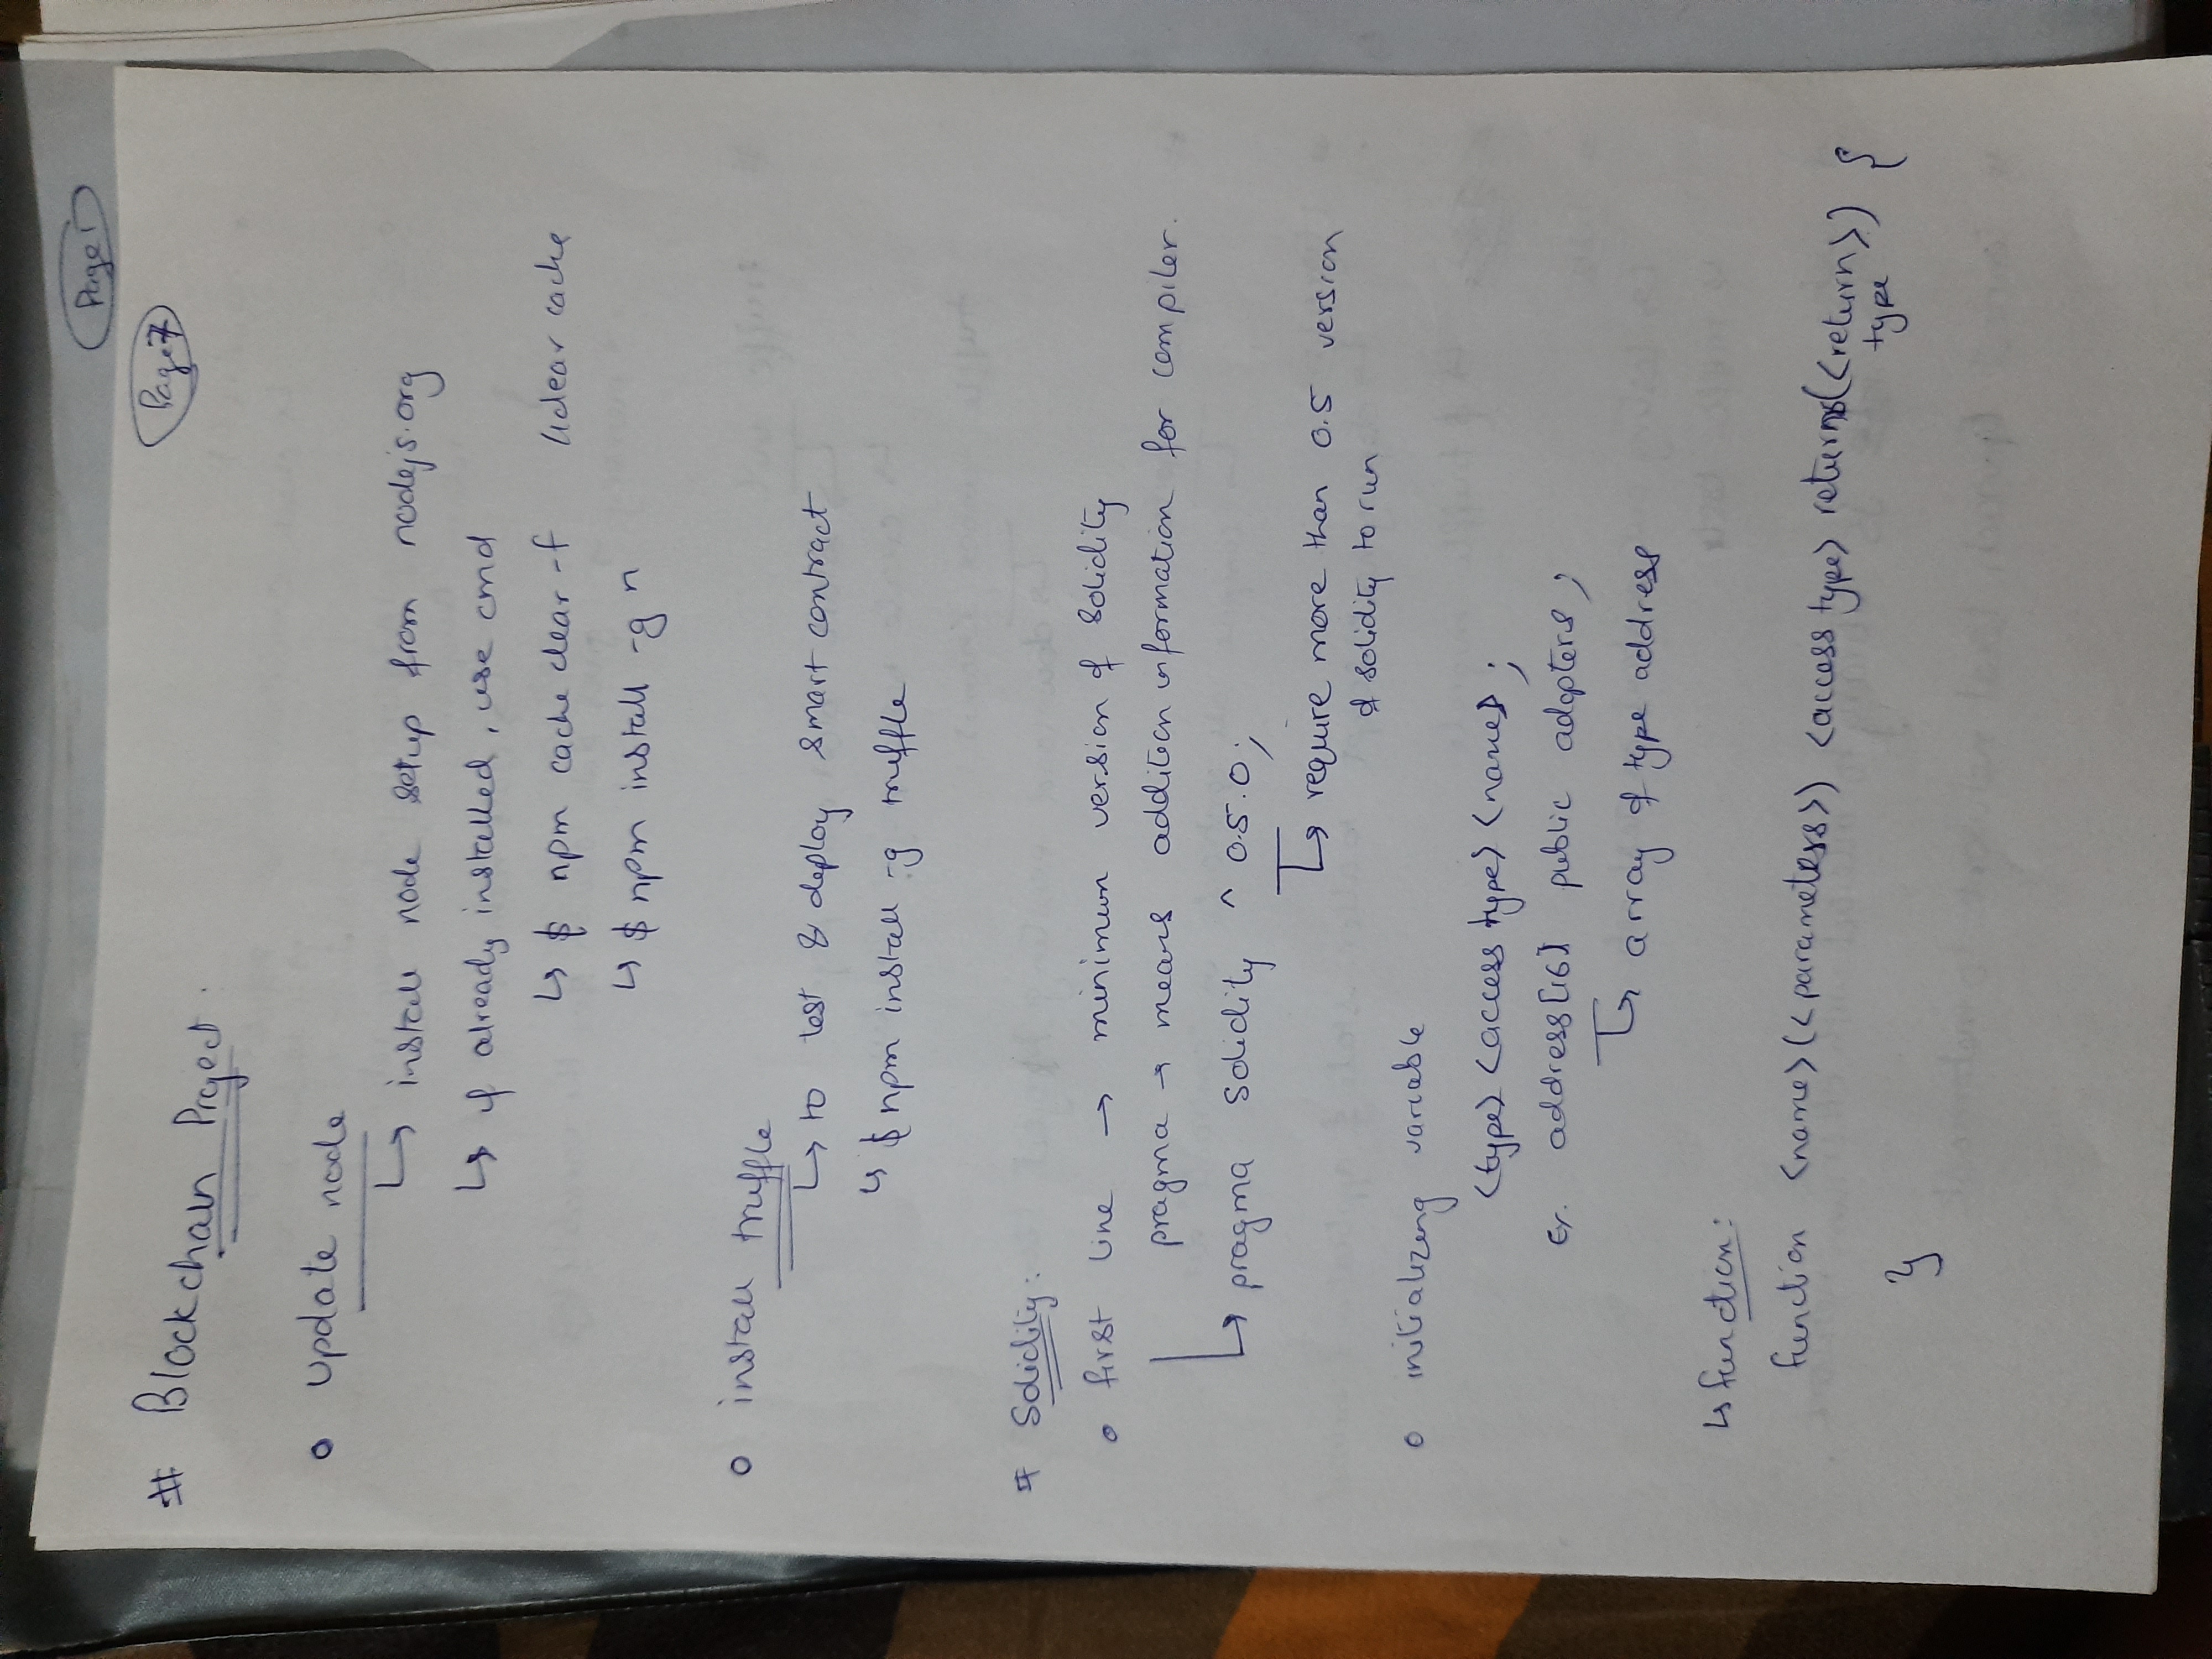 Page 1
Page 7
# Blockchain Project.
o update node
↳ install node setup from nodejs.org
↳ if already installed, use cmd
↳ $ npm cache clear -f //clear cache
↳ $ npm install -g n
o install truffle
↳ to test & deploy smart contract
↳ $ npm install -g truffle
# Solidity:
o first line → minimum version of solidity
pragma → means addition information for compiler.
↳ pragma solidity ^ 0.5.0;
↳ require more than 0.5 version
of solidity to run
o initializing variable
<type> <access type> <name>;
Ex. address[16] public adopters;
↳ array of type address
↳ function:
function <name>(<parameters>) <access type> returns(<return>) {
type
}